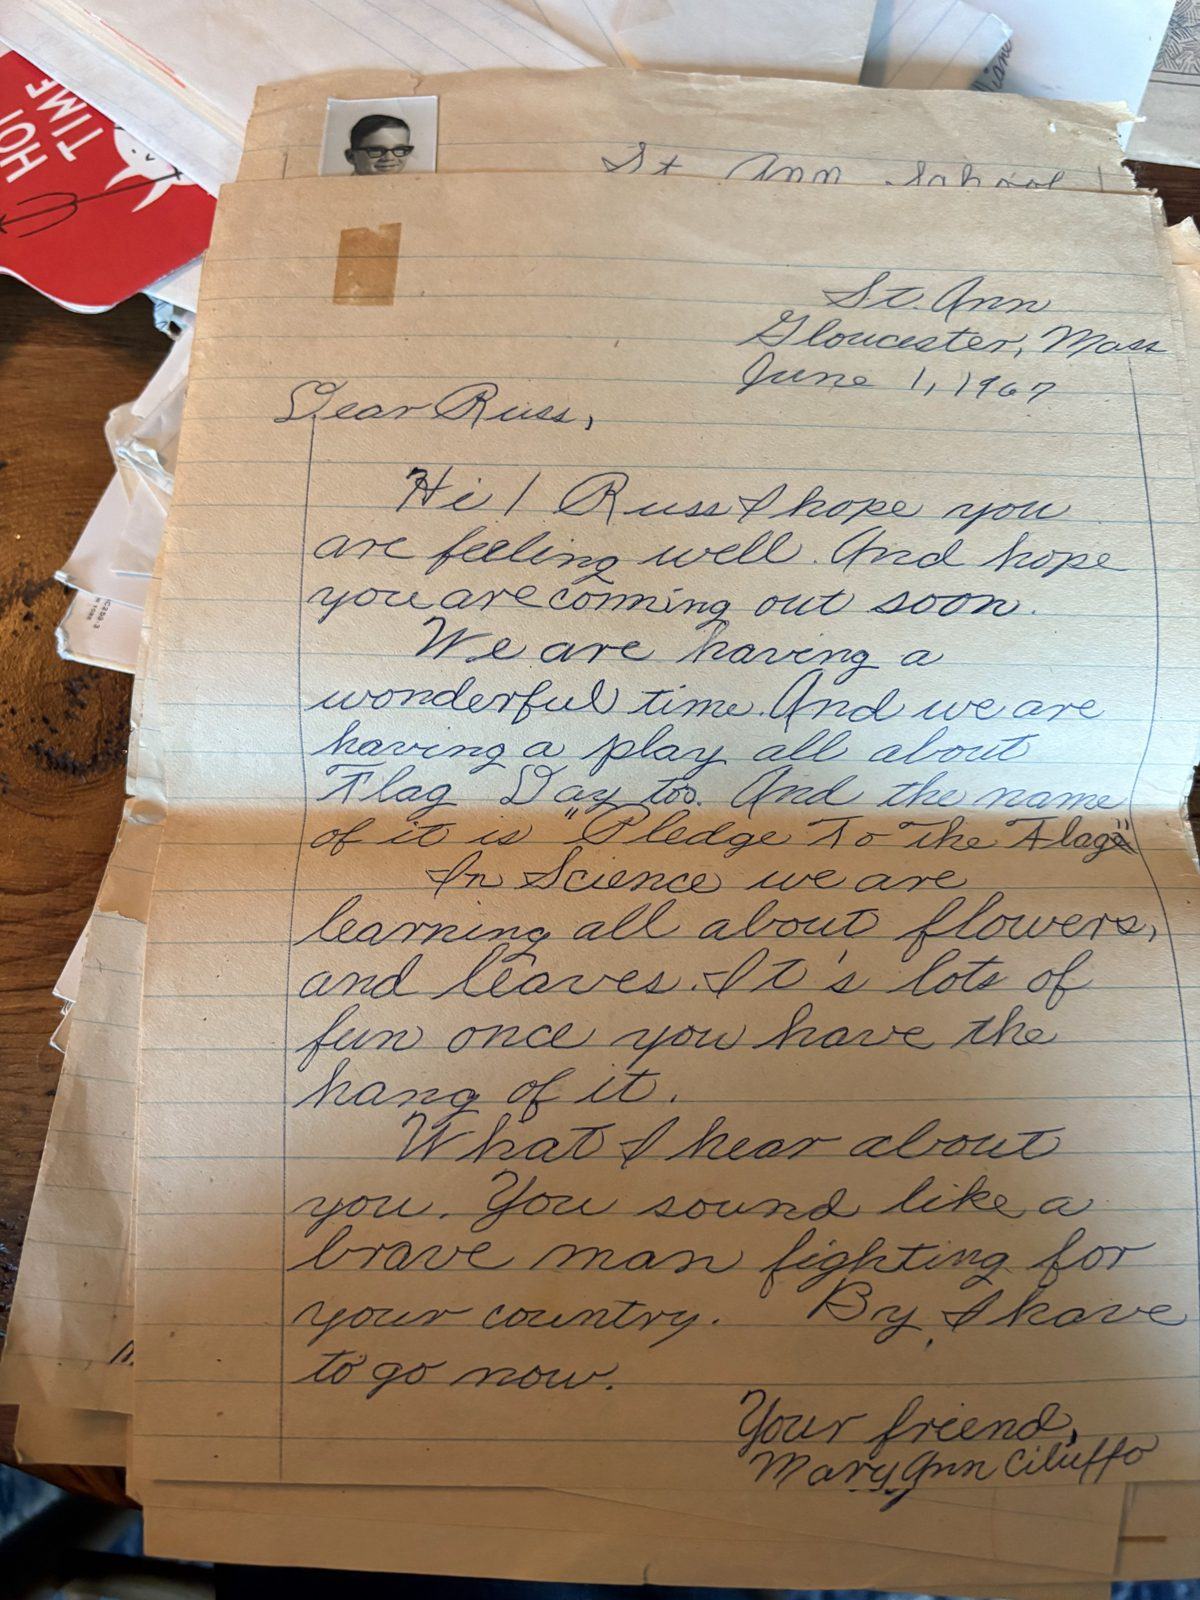 HOT
TIME
St Ann School
St. Ann
Gloucester, Mass
June 1, 1967
Dear Russ,
Hi! Russ I hope you
are feeling well. And hope
you are comming out soon.
We are having a
wonderful time. And we are
having a play all about
Flag Day too. And the name
of it is "Pledge To The Flag"
In Science we are
learning all about flowers,
and leaves. It's lots of
fun once you have the
hang of it.
What I hear about
you. You sound like a
brave man fighting for
your country. By, I have
to go now.
Your friend,
Mary Ann Ciluffo